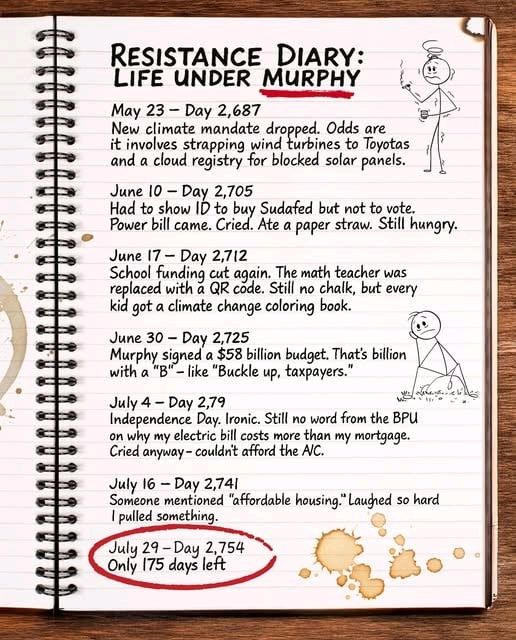 RESISTANCE DIARY:
LIFE UNDER MURPHY
May 23 – Day 2,687
New climate mandate dropped. Odds are
it involves strapping wind turbines to Toyotas
and a cloud registry for blocked solar panels.
June 10 – Day 2,705
Had to show ID to buy Sudafed but not to vote.
Power bill came. Cried. Ate a paper straw. Still hungry.
June 17 – Day 2,712
School funding cut again. The math teacher was
replaced with a QR code. Still no chalk, but every
kid got a climate change coloring book.
June 30 – Day 2,725
Murphy signed a $58 billion budget. That's billion
with a "B" – like "Buckle up, taxpayers."
July 4 – Day 2,79
Independence Day. Ironic. Still no word from the BPU
on why my electric bill costs more than my mortgage.
Cried anyway – couldn't afford the A/C.
July 16 – Day 2,741
Someone mentioned "affordable housing." Laughed so hard
I pulled something.
July 29 – Day 2,754
Only 175 days left